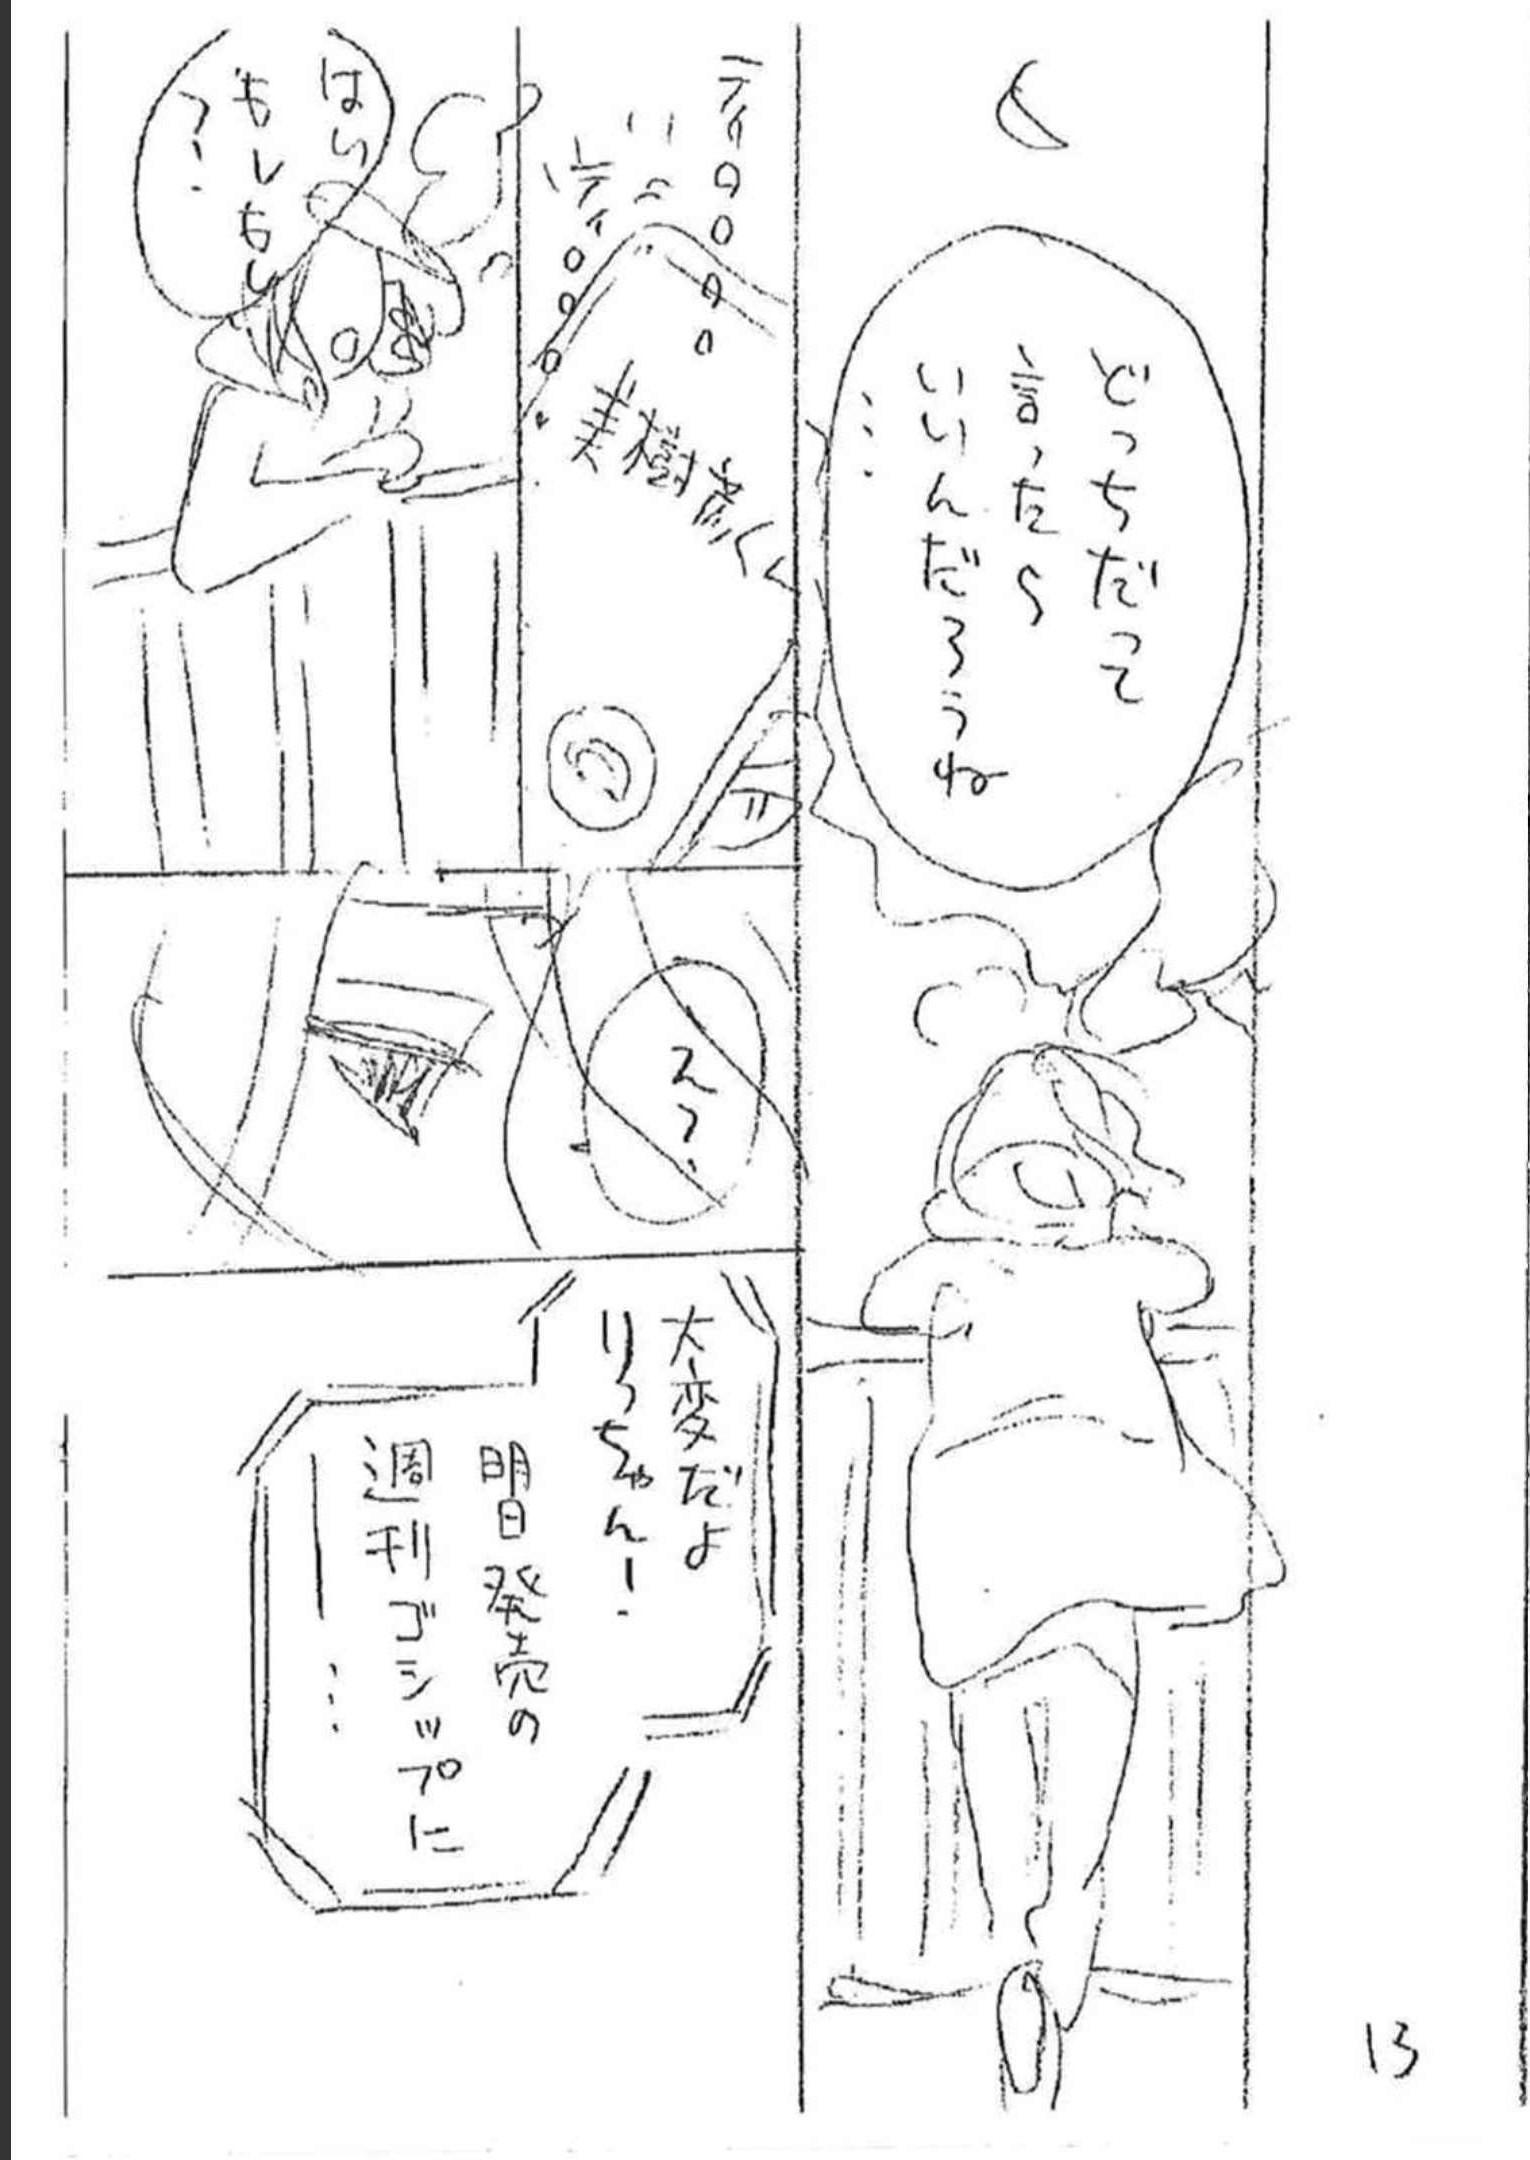 どっちだって
言ったら
いいんだろうね
…
ティロロロロ
ティロロロ
美樹彦くん
はい
もしもし
？
え？
大変だよ
りっちゃん！
明日発売の
週刊ゴシップに
―…
13